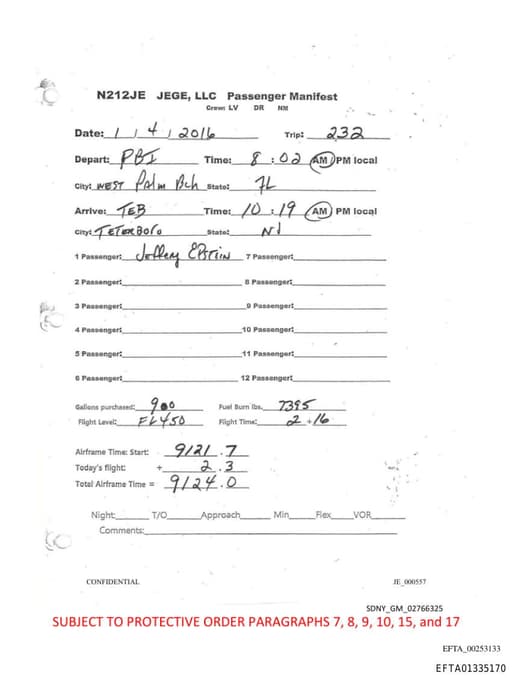 N212JE JEGE, LLC Passenger Manifest
Crew: LV DR NM
Date: 1 / 4 / 2016 Trip: 232
Depart: PBI Time: 8 : 02 AM PM local
City: WEST Palm Bch State: FL
Arrive: TEB Time: 10 : 19 AM PM local
City: TETERBORO State: NJ
1 Passenger: Jeffrey Epstein 7 Passenger:
2 Passenger: 8 Passenger:
3 Passenger: 9 Passenger:
4 Passenger: 10 Passenger:
5 Passenger: 11 Passenger:
6 Passenger: 12 Passenger:
Gallons purchased: 900 Fuel Burn lbs. 7395
Flight Level: FL450 Flight Time: 2 + 16
Airframe Time: Start: 9121.7
Today's flight: + 2.3
Total Airframe Time = 9124.0
Night: T/O Approach Min Flex VOR
Comments:
CONFIDENTIAL JE_000557
SDNY_GM_02766325
SUBJECT TO PROTECTIVE ORDER PARAGRAPHS 7, 8, 9, 10, 15, and 17
EFTA_00253133
EFTA01335170